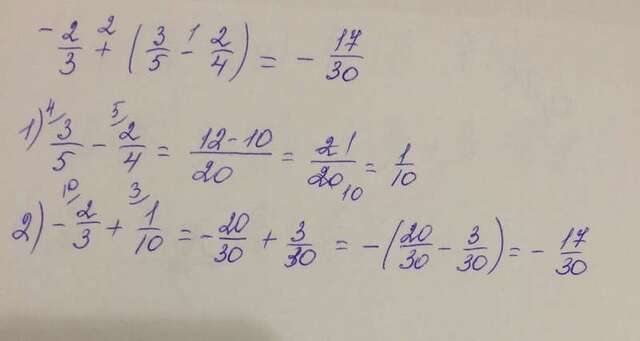 -2/3 +² (3/5 -¹ 2/4) = - 17/30
1) ⁴⁄3/5 - ⁵⁄2/4 = 12-10/20 = 2 1/20 10 = 1/10
2) - ¹⁰⁄2/3 + ³⁄1/10 = - 20/30 + 3/30 = -(20/30 - 3/30) = - 17/30